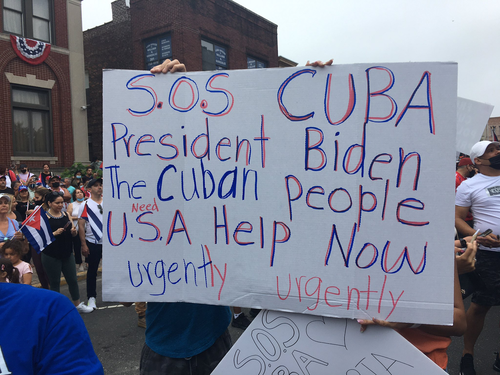 S.O.S CUBA
President Biden
The Cuban people
Need
U.S.A Help Now
urgently urgently
SOS